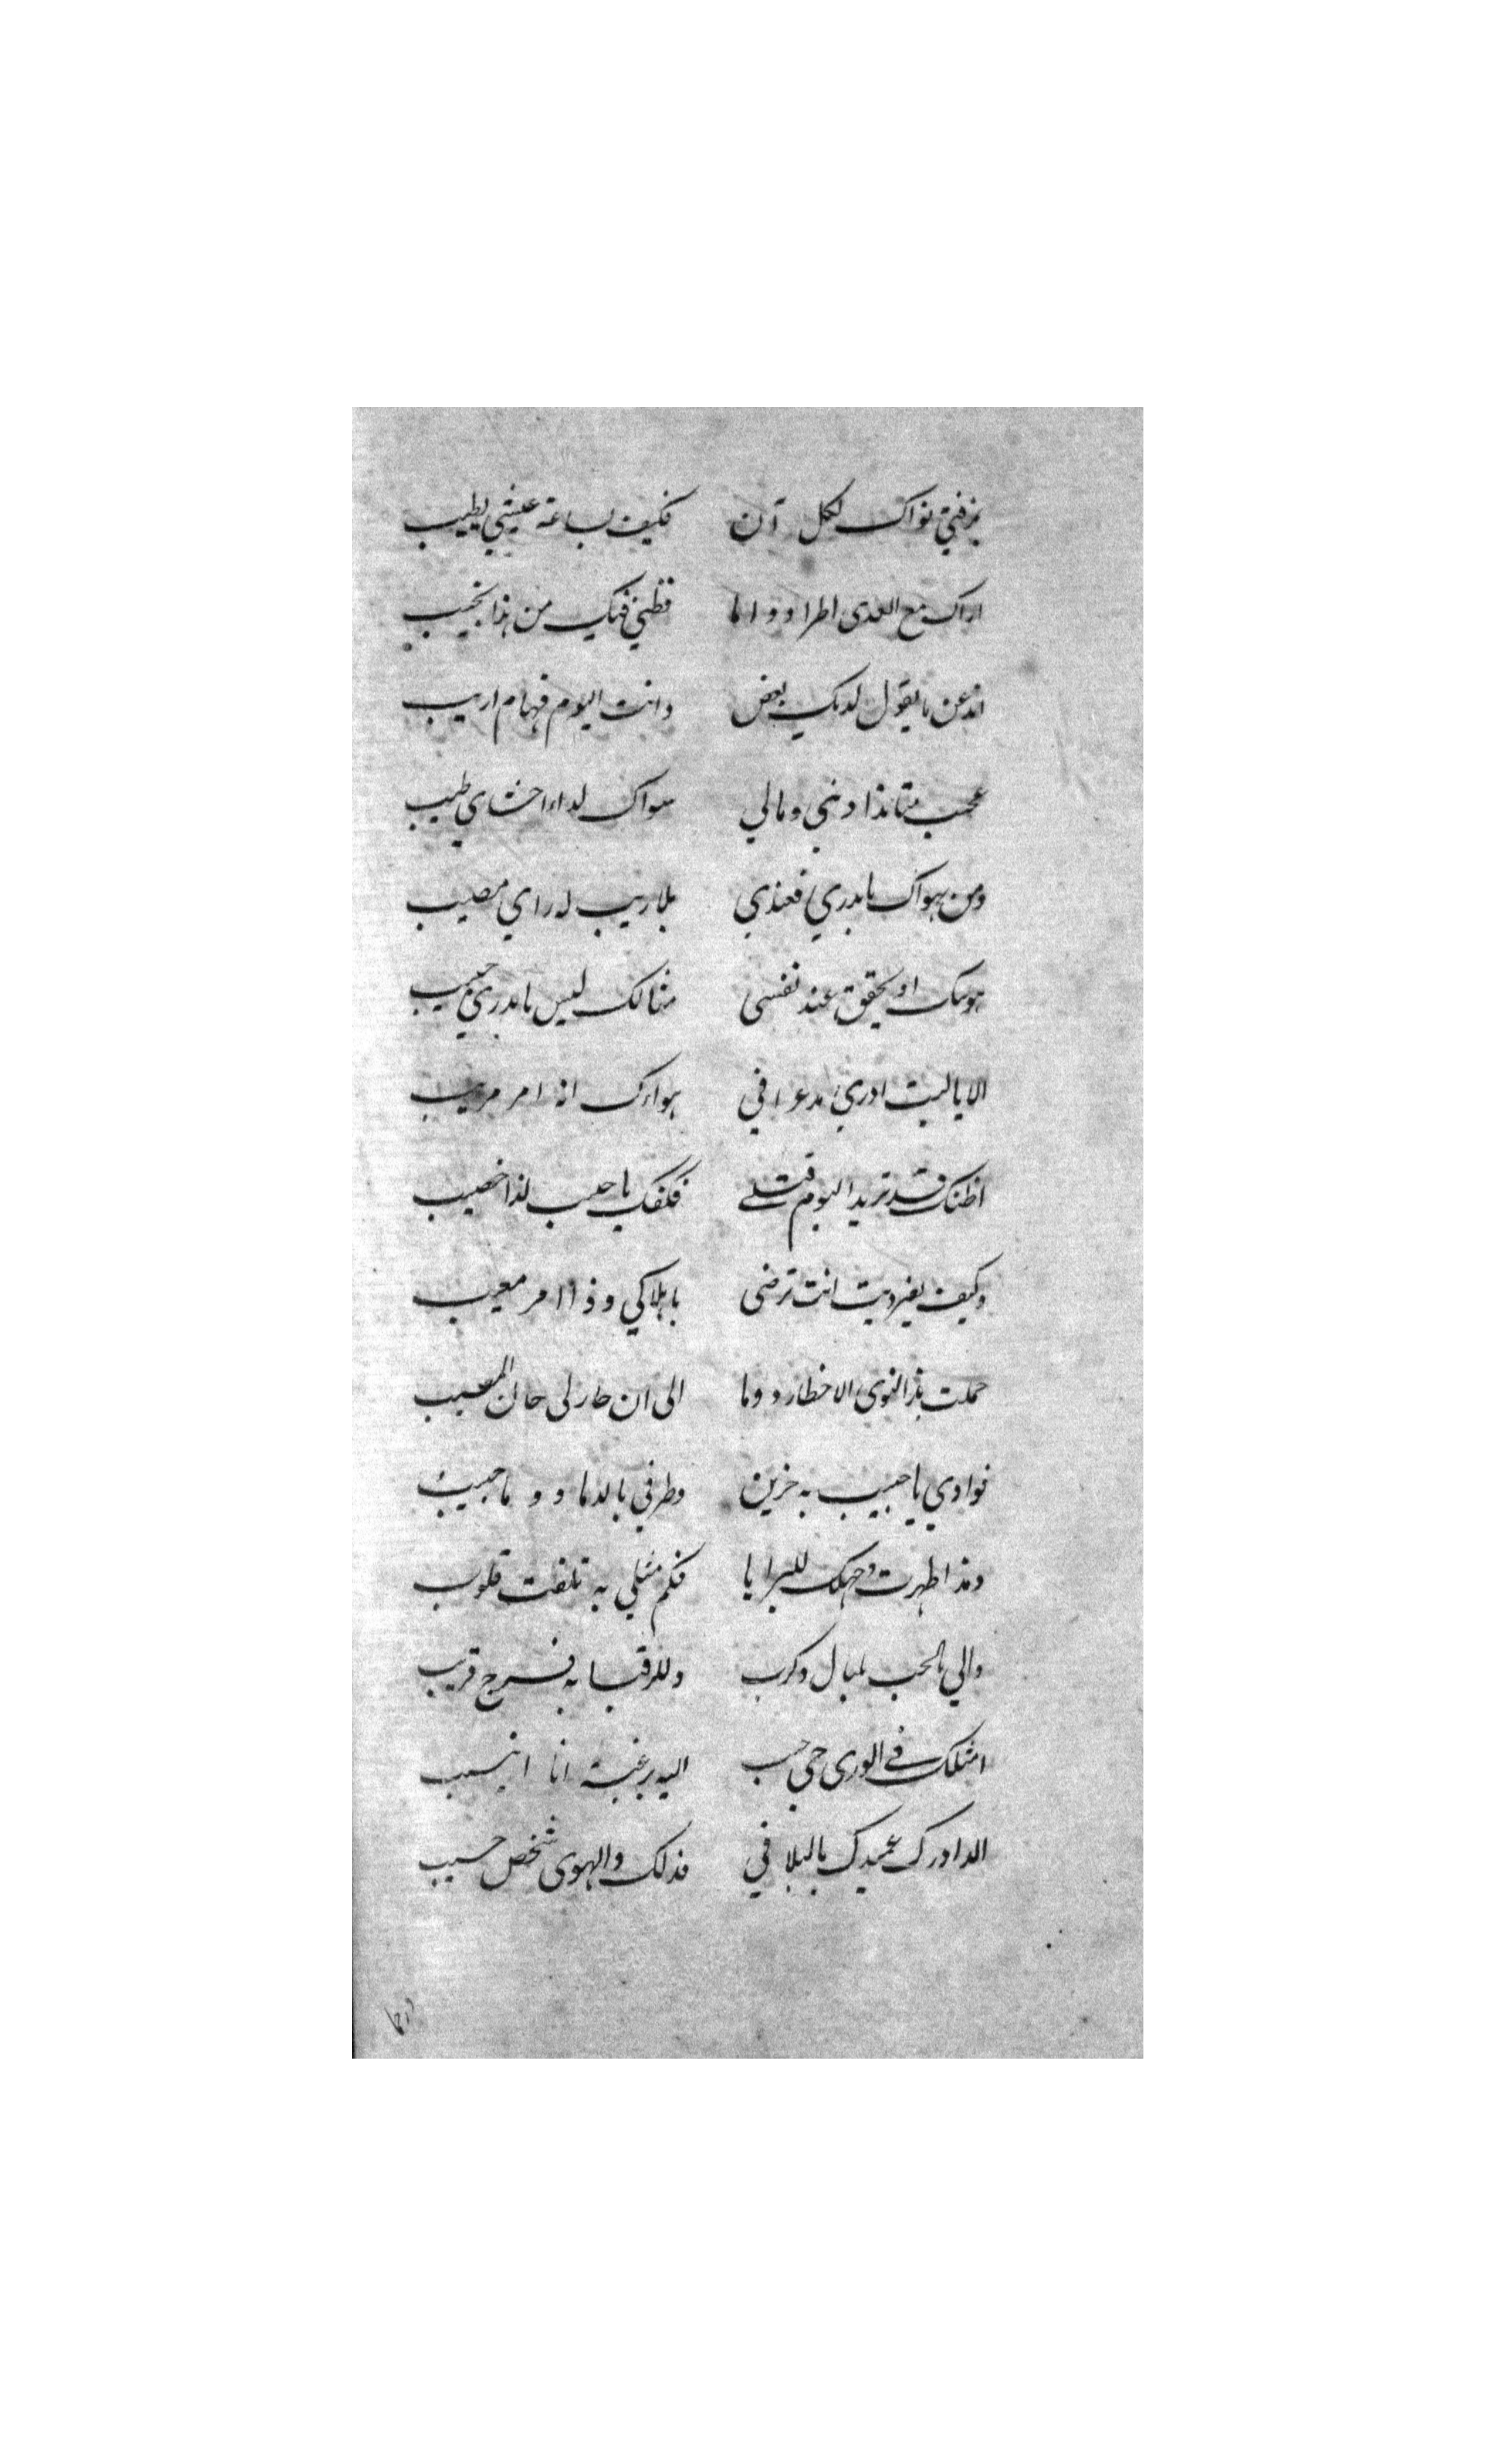 يزفني نواك لكل آن فكيف بساعة عيشي يطيب
اراك مع العدى اطرا دواما فظني فيك من هذا نجيب
اتذعن ما يقول لديك بعض وانت اليوم فهام اريب
عجب متا ومالي سواك لداء احشاي طبيب
ومن يهواك يا بدري فعندي بلا ريب له راي مصيب
تحقق عند نفسي مثالك ليس يا بدري حبيب
الا يا ليت ادري مذ عرافي هواك انه امر مريب
اظنك قد تريد اليوم قتلي فكفك يا حبيب لذا خصيب
وكيف بغير ديت انت ترضى باهلاكي وذا امر معيب
حملت بذا النوى الاخطار دوما الى ان حار لي حالي
فوادي يا حبيب به حزين وطرفي بالدما دوما حبيب
ومذ اظهرت وجهك للبرايا فكم مثلي به تلفت قلوب
والي بالحب بلبال وكرب وللرقبا به فرج قريب
امثلك في الورى حب اليه برغبة انا انيب
الا ادرك عميدك بالبلا في فذلك والهوى شخص حسيب